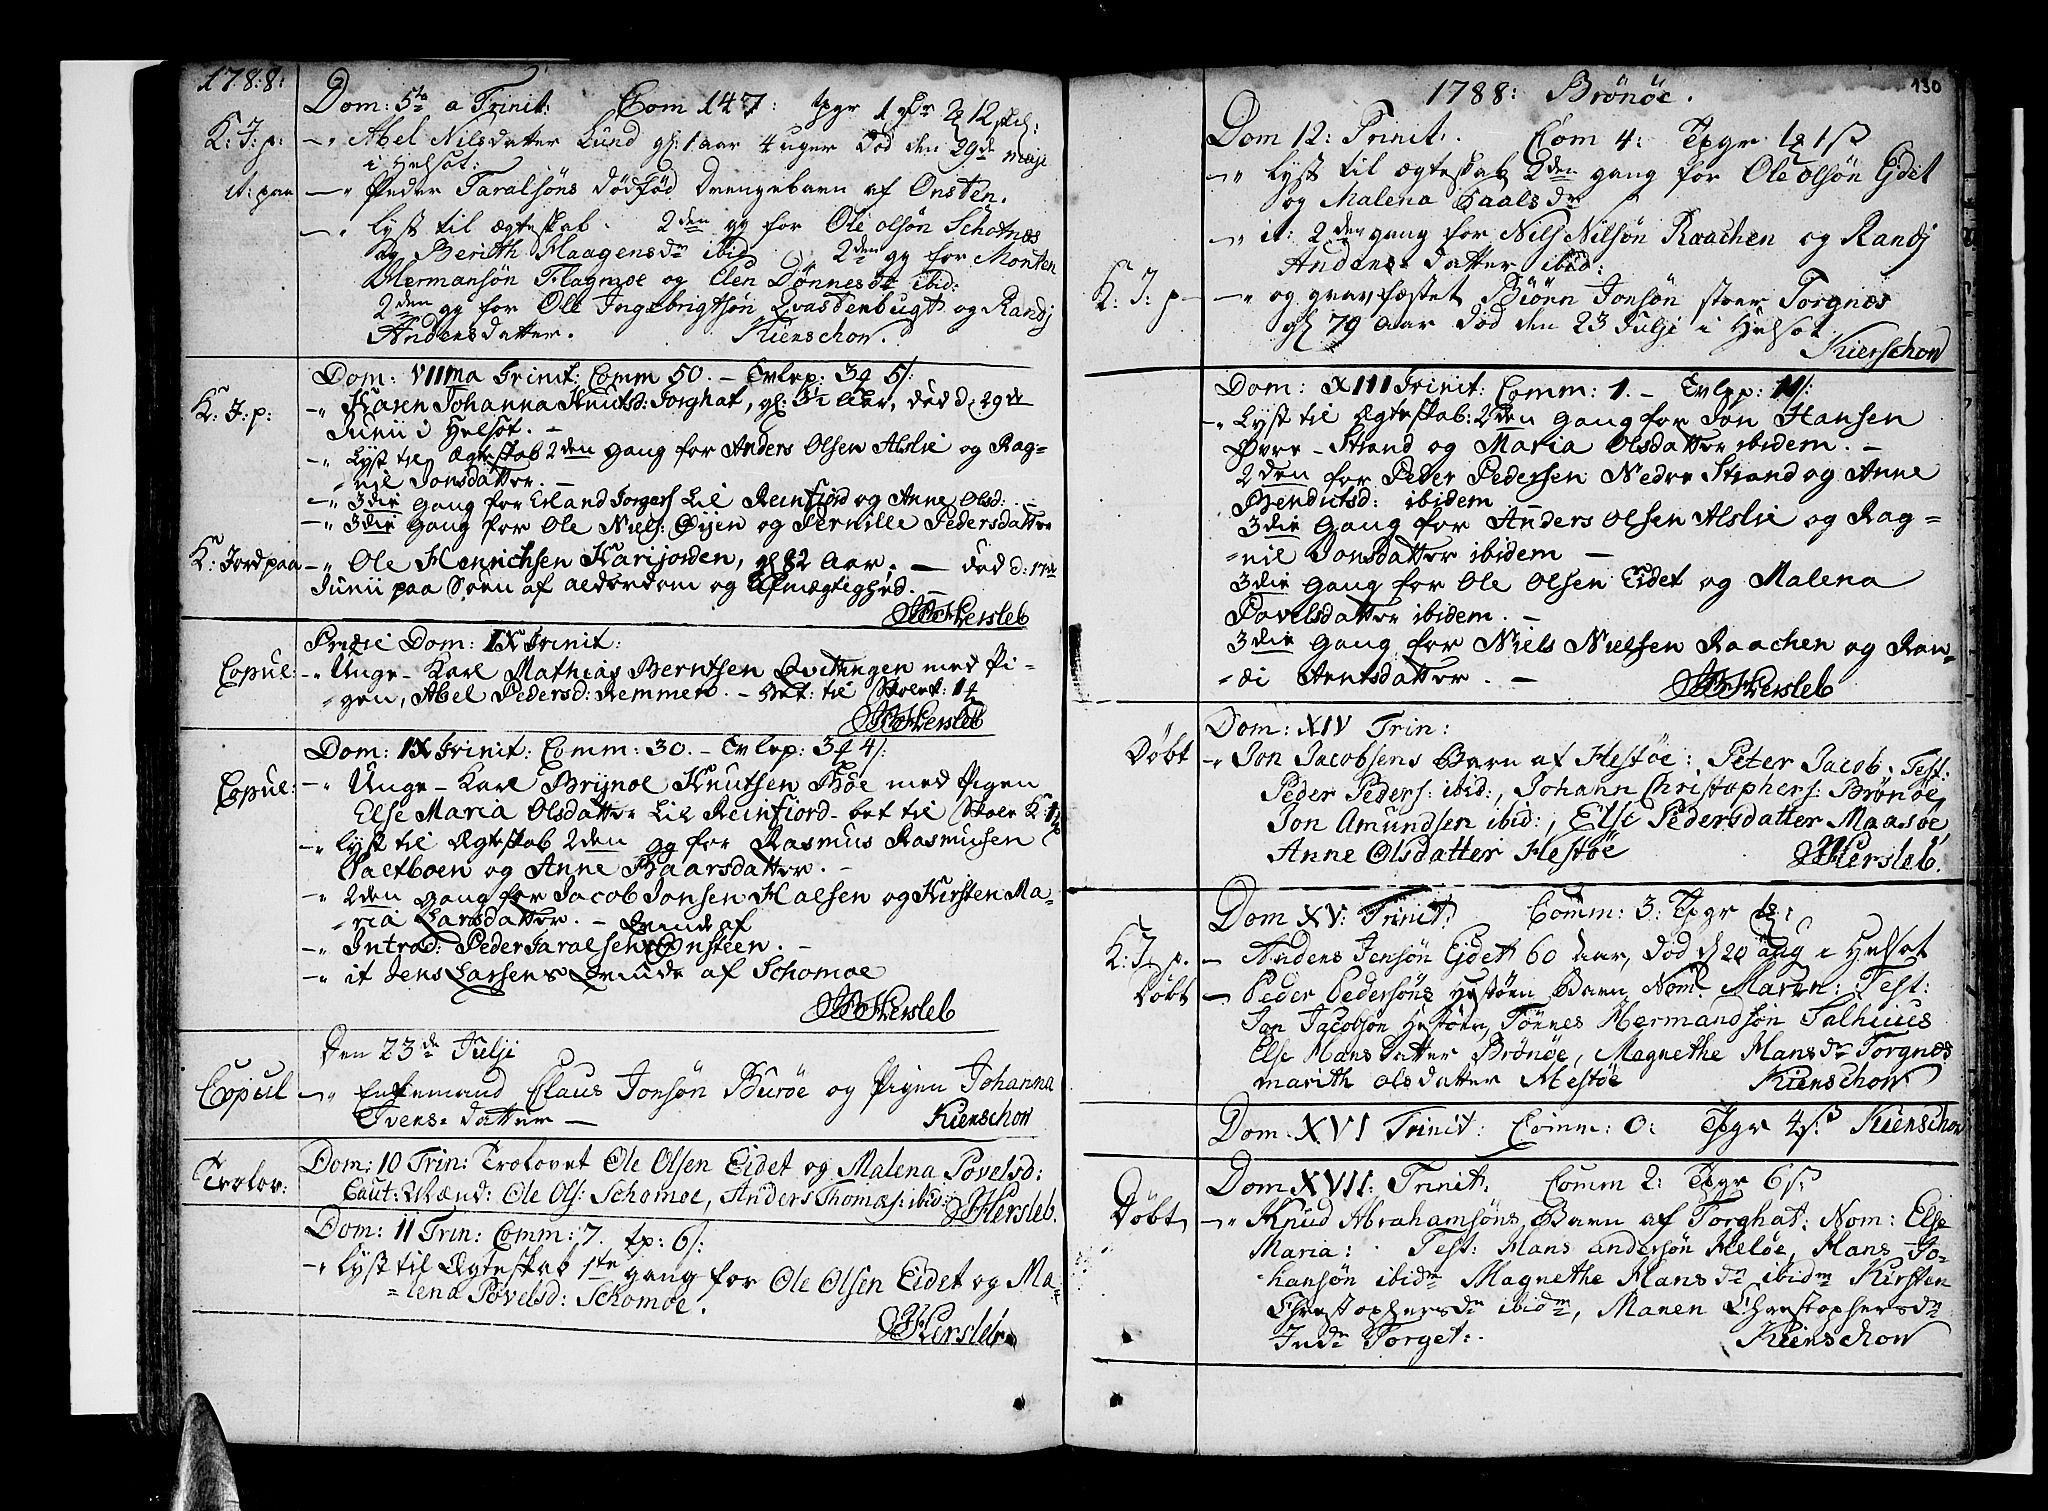 1788:
Dom: 5ta a Trinit: Com 147: tpgr 1 12 skl:
K: J: p: Abel Nilsdatter Lund gl: 1 aar 4 uger død den 29de
i Helsot:
it: paa Peder Taralsöns dödfød drengebarn af Onsten.
Lyst til ægteskab. 2den gg for Ole olsön Schotnæs
og Berith Haagensdr ibid 2den gg for Monten
Hermansön Flagmoe og Elen Dönnesdr ibid:
2den gg for Ole Ingebrigtsön Qvastenbugt og Randj
Andensdatter. Kierschow.
Dom: VIIma Trinit: Comm 50. - Tvlep: 5/:
K: J: p: Karen Johanna Knutsd: Torghat, gl: Aar, død d: 29de
Junii i Helsot. -
Lyst til Ægteskab 2den gang for Anders Olsen Alslie og Rag=
=nil Jonsdatter. -
3die gang for Erland Lil Reinfiord og Anne Olsd:
3die gang for Ole Niels: Øijen og Pernille Pedersdatter
K: Jord paa Ole Henrichsen Harijorden, gl 82 Aar, - død d: 17de
Junii paa Søen af alderdom og Afmægtighed. -
Hersleb
Prædie Dom: IX Trinit:
Copul: Unge-Karl Mathias Berntsen Qvittingen med Pi-
=gen, Abel Pedersd: Remmen. - bet: til Skolek:
Hersleb
Dom: IX Trinit: Comm: 30. - Tvlep: 4/:
Copul: Unge-Karl Brijnol Knutsen Bøe med Pigen
Else Maria Olsdatter Lil Reinfiord - bet til Skole K:
Lyst til Ægteskab 2den gg for Rasmus Rasmusen
Saltboen og Anne Baarsdatter. -
2den gang for Jacob Jonsen Halsen og Kirsten Ma-
=ria Larsdatter. -
Introd: Peder Taralsens Qvinde af Onsteen. -
it Jens Larsens Qvinde af Schomoe
Hersleb
Den 23de Julji
Copul Enkemand Claus Jonsön Buröe og Pigen Johanna
Ivens=datter - Kierschow
Trolov: Dom: 10 Trin: Trolovet Ole Olsen Eidet og Malena Povelsd:
Caut: Mænd: Ole Ols: Schomoe, Anders Thomæs: ibid: Hersleb.
Dom: 11 Trin: Comm: 7. tp: 6/:
Lyst til Ægteskab 1ste gang for Ole Olsen Eidet og Ma=
=lena Povelsd: Schomoe.
Hersleb
130
1788: Brönöe.
Dom 12: Trinit: Com 4: Tpgr
Lyst til ægteskab 2den gang for Ole olsön Ejdet
og Malena Paalsdr
it: 2den gang for Nils Nilsön Raachen og Randj
Andens=datter ibid:
K: J: p og gravfæstet Biörn Jonsön stoer Torgnæs
gl 79 Aar død den 23 Julji i Helsot
Kierschow
Dom: XIII Trinit: Comm: 1. - Tvlep:
Lyst til Ægteskab: 2den gang for Jon Hansen
Øvre-Strand og Maria Olsdatter ibidem. -
2den for Peter Pedersen Nedre Strand og Anne
Bendictsd: ibidem
3die gang for Anders Olsen Alslie og Rag=
=nil Jonsdatter ibidem -
3die gang for Ole Olsen Eidet og Malena
Povelsdatter ibidem. -
3die gang for Niels Nielsen Raachen og Ran=
=di Arntsdatter. -
Hersleb
Dom: XIV Trin:
Döbt Jon Jacobsens Barn af Hestöe: Peter Jacob. Test:
Peder Peders: ibid:, Johann Christophers: Brönöe,
Jon Amundsen ibid:, Else Pedersdatter Maasöe,
Anne Olsdatter Hestöe Hersleb.
Dom XV: Trinit: Comm: 3: Tpgr
K: J. p. Andens Jensön Ejdet 60 Aar, död d 20 aug i Helsot
Döbt Peder Pedersöns Hestöen Barn Nom: Maren: Test:
Jon Jacobsön Hestöen, Tönnes Hermandsön Salhuus
Else Hansdatter Brönöe, Magnethe Hansdr Torgnæs
marith olsdatter Hestöe Kierschow
Dom. XVI Trinit: Comm: 0: Tpgr Kierschow
Dom XVII: Trinit: Comm 2: Tpgr 6
Döbt Knud Abrahamsöns Barn af Torghat: Nom: Else
Maria: Test: Hans andersön Helöe, Hans Jo-
hansön ibidm Magnethe Hansdr ibidm Kirsten
Christophersdr ibidm, Manen Christophersdr
Indr Torget: Kierschow